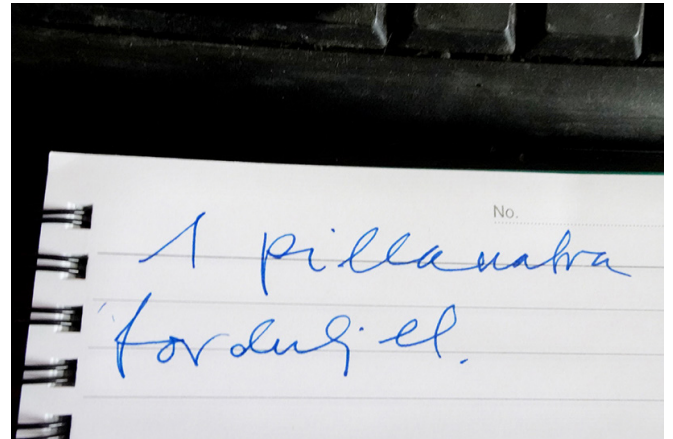 No.
1 pillanatra
fordulj el.